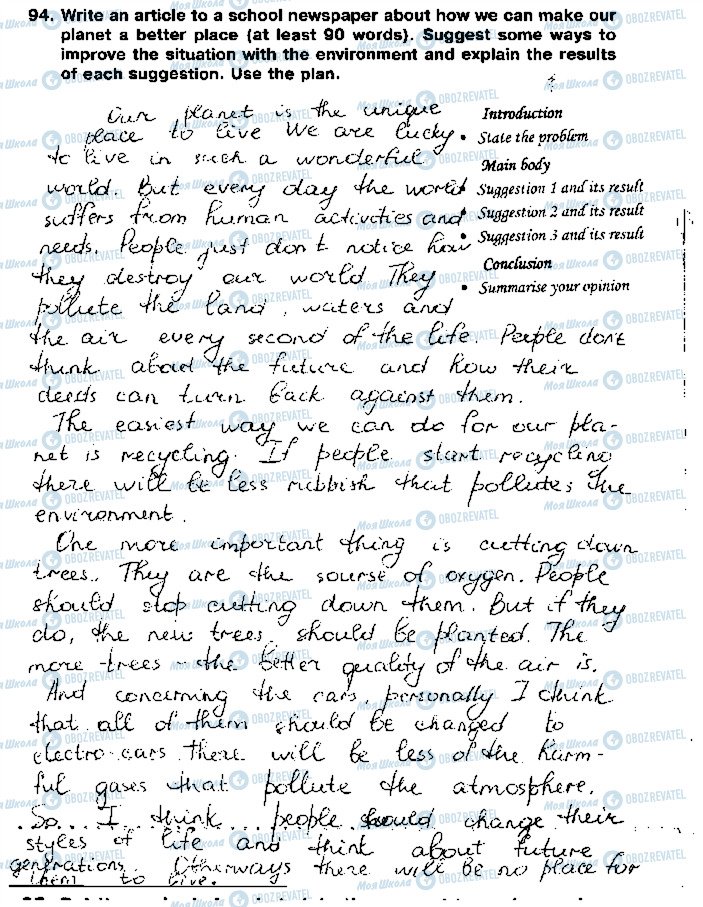 94. Write an article to a school newspaper about how we can make our
planet a better place (at least 90 words). Suggest some ways to
improve the situation with the environment and explain the results
of each suggestion. Use the plan.
Our planet is the unique
place to live We are lucky
to live in such a wonderful
world. But every day the world
suffers from human activities and
needs. People just don't notice how
they destroy our world They
pollute the land, waters and
the air every second of the life People don't
think about the future and how their
deeds can turn back against them.
The easiest way we can do for our pla-
net is recycling. If people start recycling
there will be less rubbish that pollutes the
environment.
One more important thing is cutting down
trees. They are the sourse of oxygen. People
should stop cutting down them. But if they
do, the new trees should be planted. The
more trees - the better quality of the air is.
And concerning the cars, personally I think
that all of them should be changed to
electro-cars. There will be less of the harm-
ful gases that pollute the atmosphere.
So I think people should change their
styles of life and think about future
generations. Otherways there will be no place for
them to live.
Introduction
• State the problem
Main body
• Suggestion 1 and its result
• Suggestion 2 and its result
• Suggestion 3 and its result
Conclusion
• Summarise your opinion
Моя Школа OBOZREVATEL